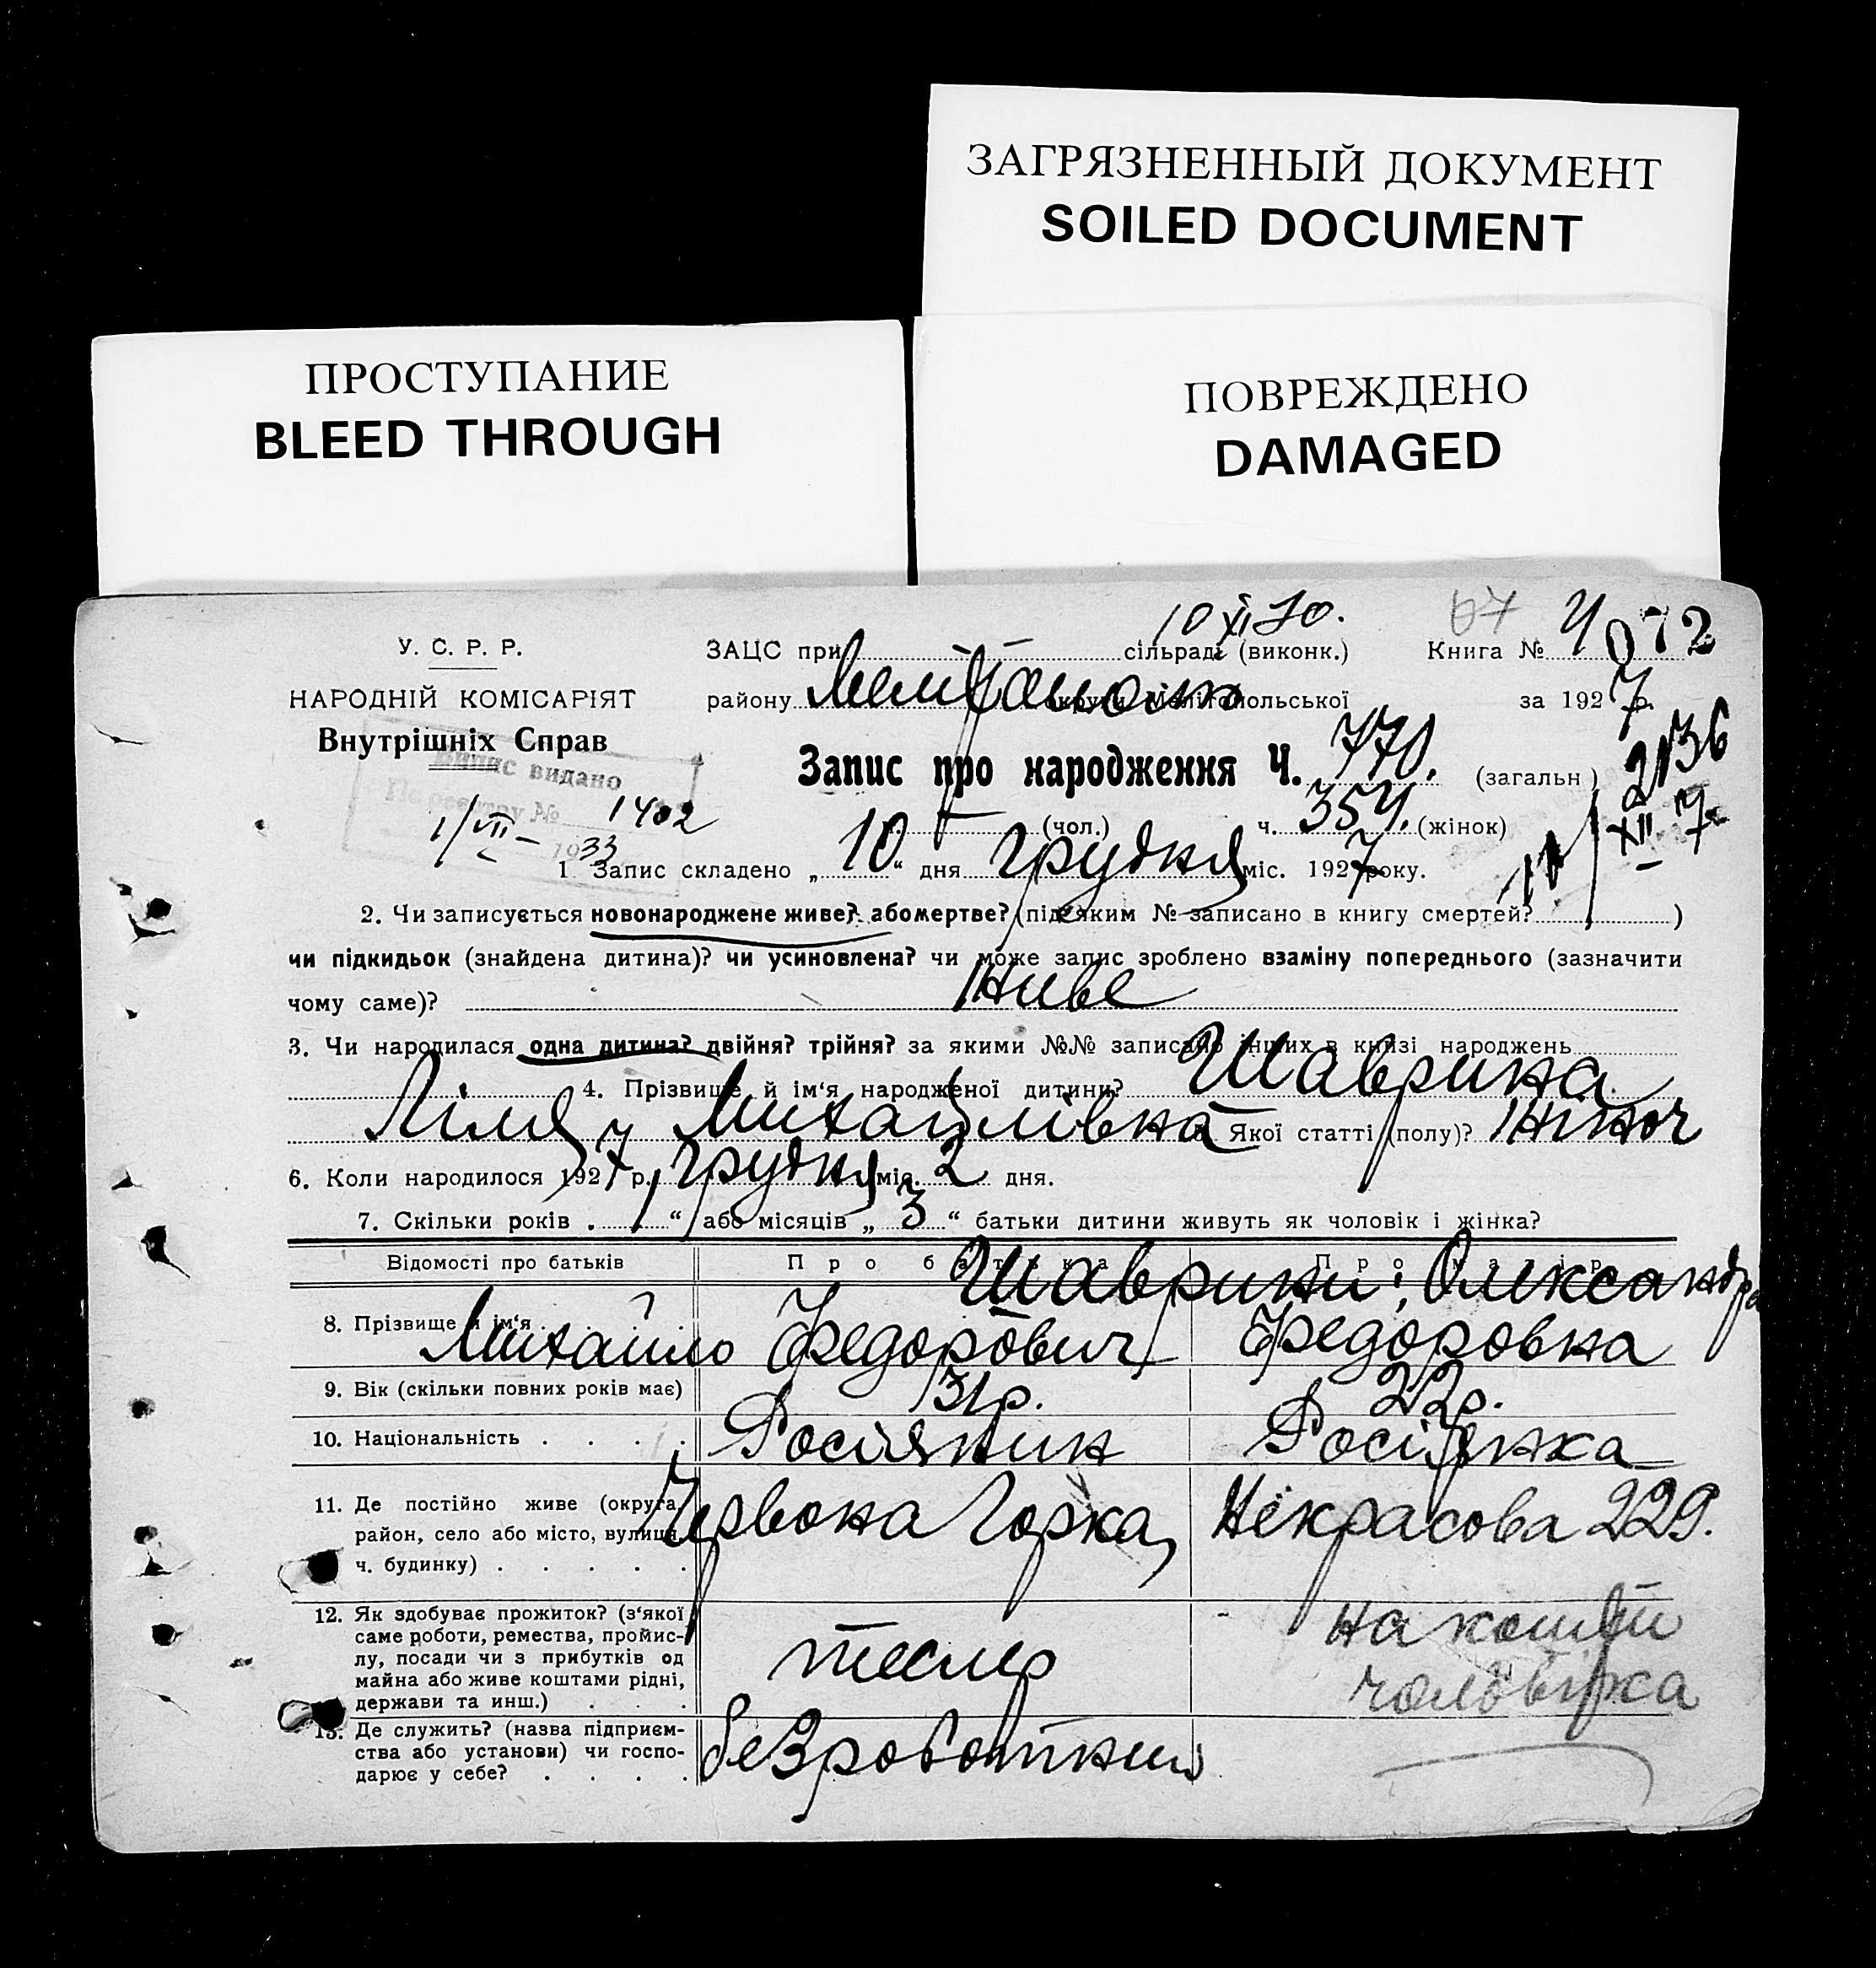 ЗАГРЯЗНЕННЫЙ ДОКУМЕНТ
SOILED DOCUMENT
ПРОСТУПАНИЕ
BLEED THROUGH
ПОВРЕЖДЕНО
DAMAGED
10 XII 70.
У. С. Р. Р.
ЗАЦС при сільраді (виконк.)
Книга № 4 072
НАРОДНІЙ КОМІСАРІЯТ
району Мелітополь округи Мелітопольської
за 1927 р.
Внутрішніх Справ
Запис про народження Ч. 770. (загальн)
2136
Випис видано
По реєстру № 1402
1/VII - 1933
— (чол.) ч. 354. (жінок)
XII 7
1 Запис складено „10“ дня грудня міс. 1927 року.
2. Чи записується новонароджене живе? або мертве? (під яким № записано в книгу смертей? )
чи підкидьок (знайдена дитина)? чи усиновлена? чи може запис зроблено взаміну попереднього (зазначити
чому саме)? Живе
3. Чи народилася одна дитина? двійня? трійня? за якими №№ записано інших в книзі народжень
4. Прізвище й ім‘я народженої дитини? Шаврина
Ліля Михайлівна Якої статті (полу)? Жіноч
6. Коли народилося 1927 р. грудня міс. 2 дня.
7. Скільки років . “ або місяців „ 3 “ батьки дитини живуть як чоловік і жінка?
Відомості про батьків
Про батька
Про матір
Шаврини: Олександра
8. Прізвище й ім‘я . . . . Михайло Федорович Федоровна
9. Вік (скільки повних років має) 31р. 22р.
10. Національність . . . . Росіянин Росіянка
11. Де постійно живе (округа,
район, село або місто, вулиця,
ч. будинку) . . . . .
Червона Горка, Некрасова 229.
12. Як здобуває прожиток? (з‘якої
саме роботи, ремества, промис-
лу, посади чи з прибутків од
майна або живе коштами рідні,
держави та инш.) . . .
тесляр
на кошти
чоловіка
13. Де служить? (назва підприєм-
ства або установи) чи госпо-
дарює у себе? . . . .
безроботний